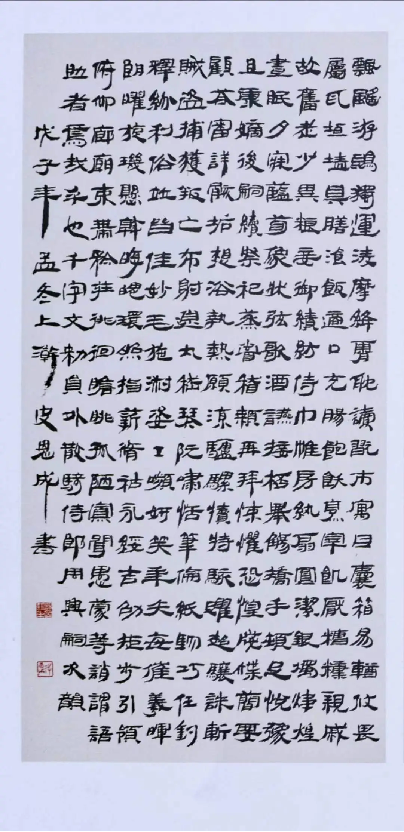 飄颻游鵾獨運淩摩絳霄耽讀翫市寓目囊箱易輶攸畏
屬耳垣墻具膳飡飯適口充腸飽飫烹宰飢厭糟糠親戚
故舊老少異糧妾御績紡侍巾帷房紈扇圓潔銀燭煒煌
晝眠夕寐藍筍象牀弦歌酒讌接杯舉觴矯手頓足悅豫
且康嫡後嗣續祭祀蒸嘗稽顙再拜悚懼恐惶牋牒簡要
顧答審詳骸垢想浴執熱願涼驢騾犢特駭躍超驤誅斬
賊盜捕獲叛亡布射遼丸嵇琴阮嘯恬筆倫紙鈞巧任釣
釋紛利俗並皆佳妙毛施淑姿工顰妍笑年矢每催羲暉
朗曜旋璣懸斡晦魄環照指薪脩祜永綏吉劭矩步引領
俯仰廊廟束帶矜莊徘徊瞻眺孤陋寡聞愚蒙等誚謂語
助者焉哉乎也千字文勑員外散騎侍郎周興嗣次韻
戊子年孟冬上澣皮思成書